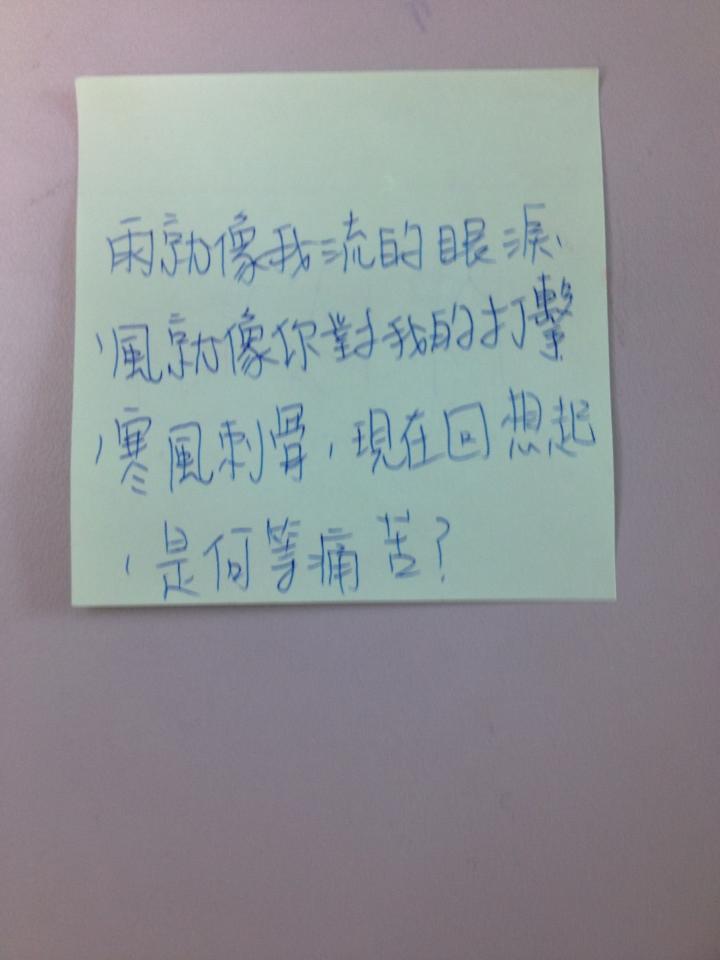 雨就像我流的眼淚
,風就像你對我的打擊
,寒風刺骨,現在回想起
,是何等痛苦?